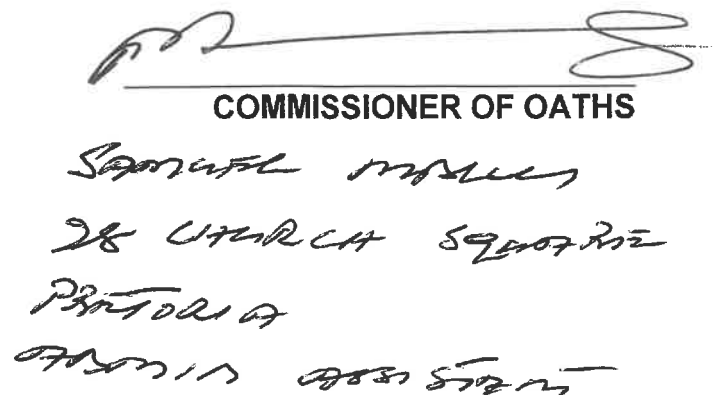 COMMISSIONER OF OATHS
SAMUEL
28 CHURCH SQUARE
PRETORIA
ADMIN ASSISTANT